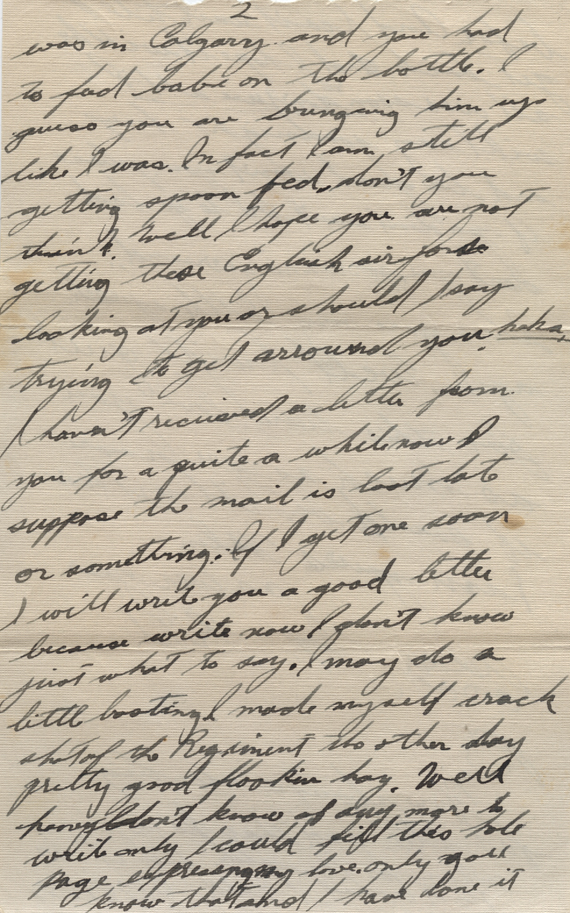 2
was in Calgary and you had
to fed babe on the bottle. I
guess you are bringing him up
like I was. In fact I am still
getting spoon fed, don't you
think. Well I hope you are not
getting these English air force
looking at you or should I say
trying to get arround you haha,
I haven't recieved a letter from
you for a quite a while now I
suppose the mail is lost late
or something. If I get one soon
I will write you a good letter
because write now I don't know
just what to say. I may do a
little boasting I made myself crack
shot of the Regiment the other day
pretty good flookin hay. Well
honey I don't know of any more to
write only I could fill this hole
page expressing my love, only you
know that and I have done it